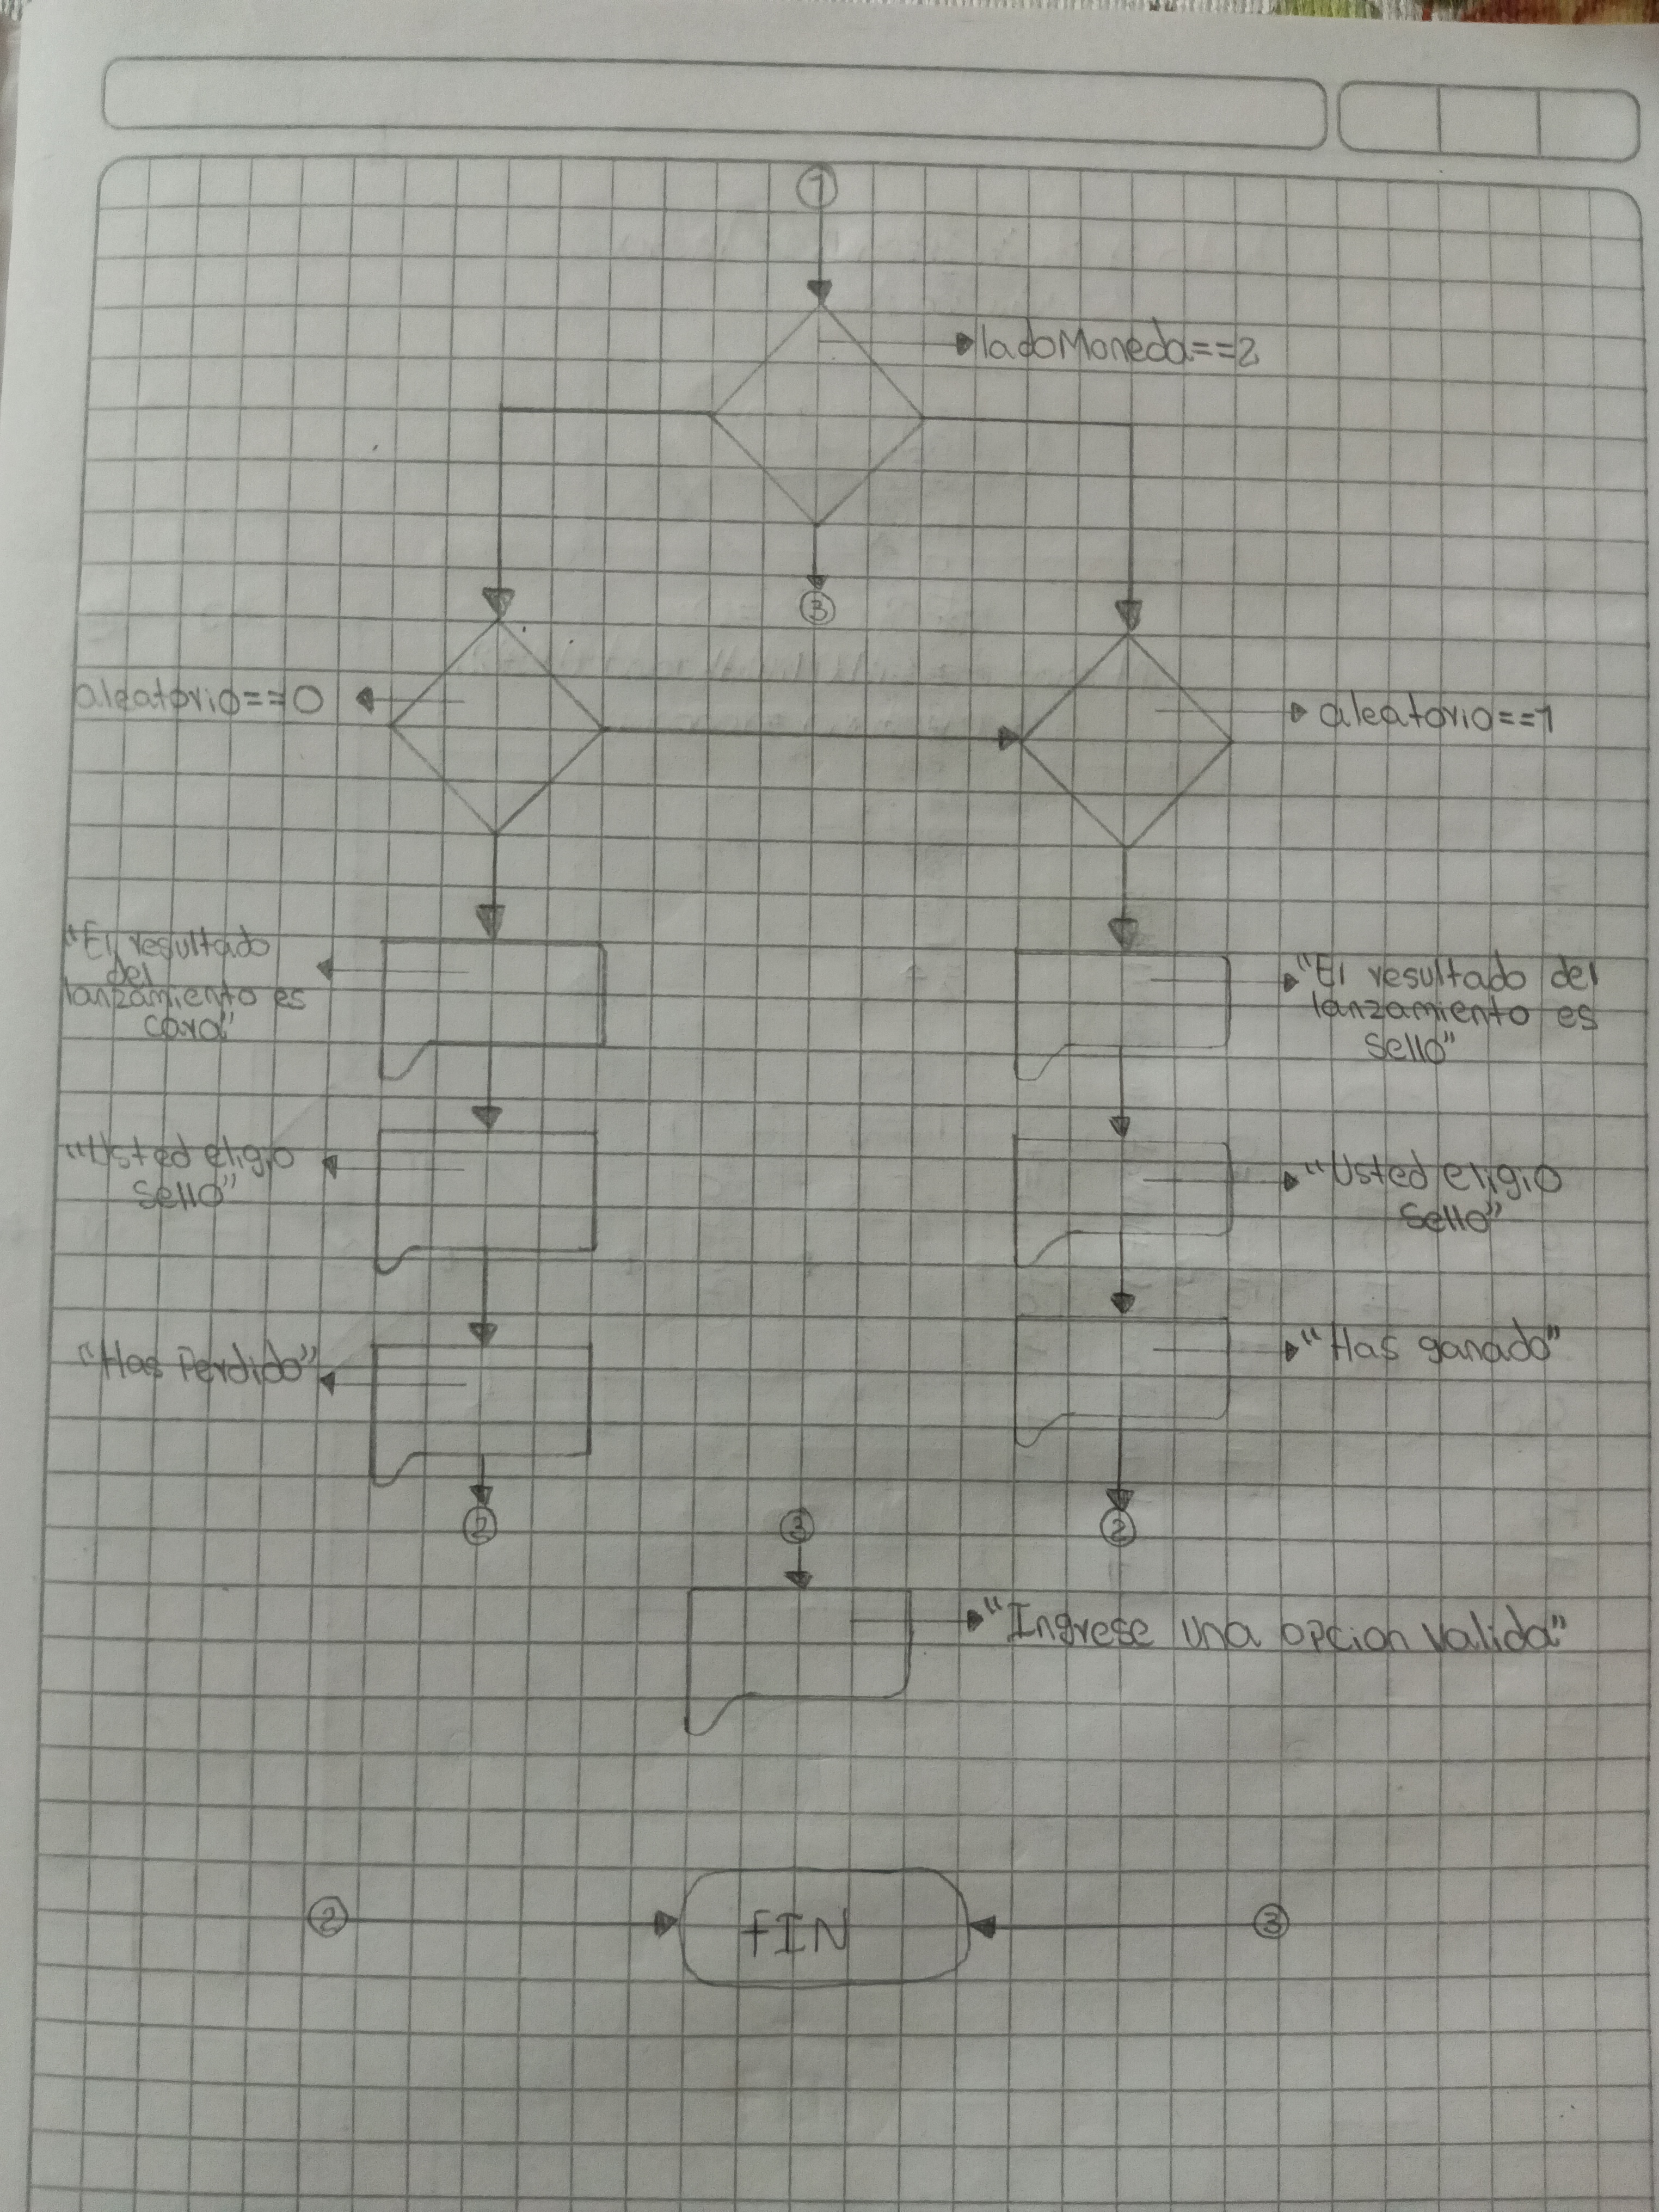 1
ladoMoneda==2
3
aleatorio==0
aleatorio==1
"El resultado
del
lanzamiento es
cara"
"El resultado del
lanzamiento es
Sello"
"Usted eligio
Sello"
"Usted eligio
Sello"
"Has Perdido"
"Has ganado"
2
3
2
"Ingrese una opcion valida"
2
fIN
3